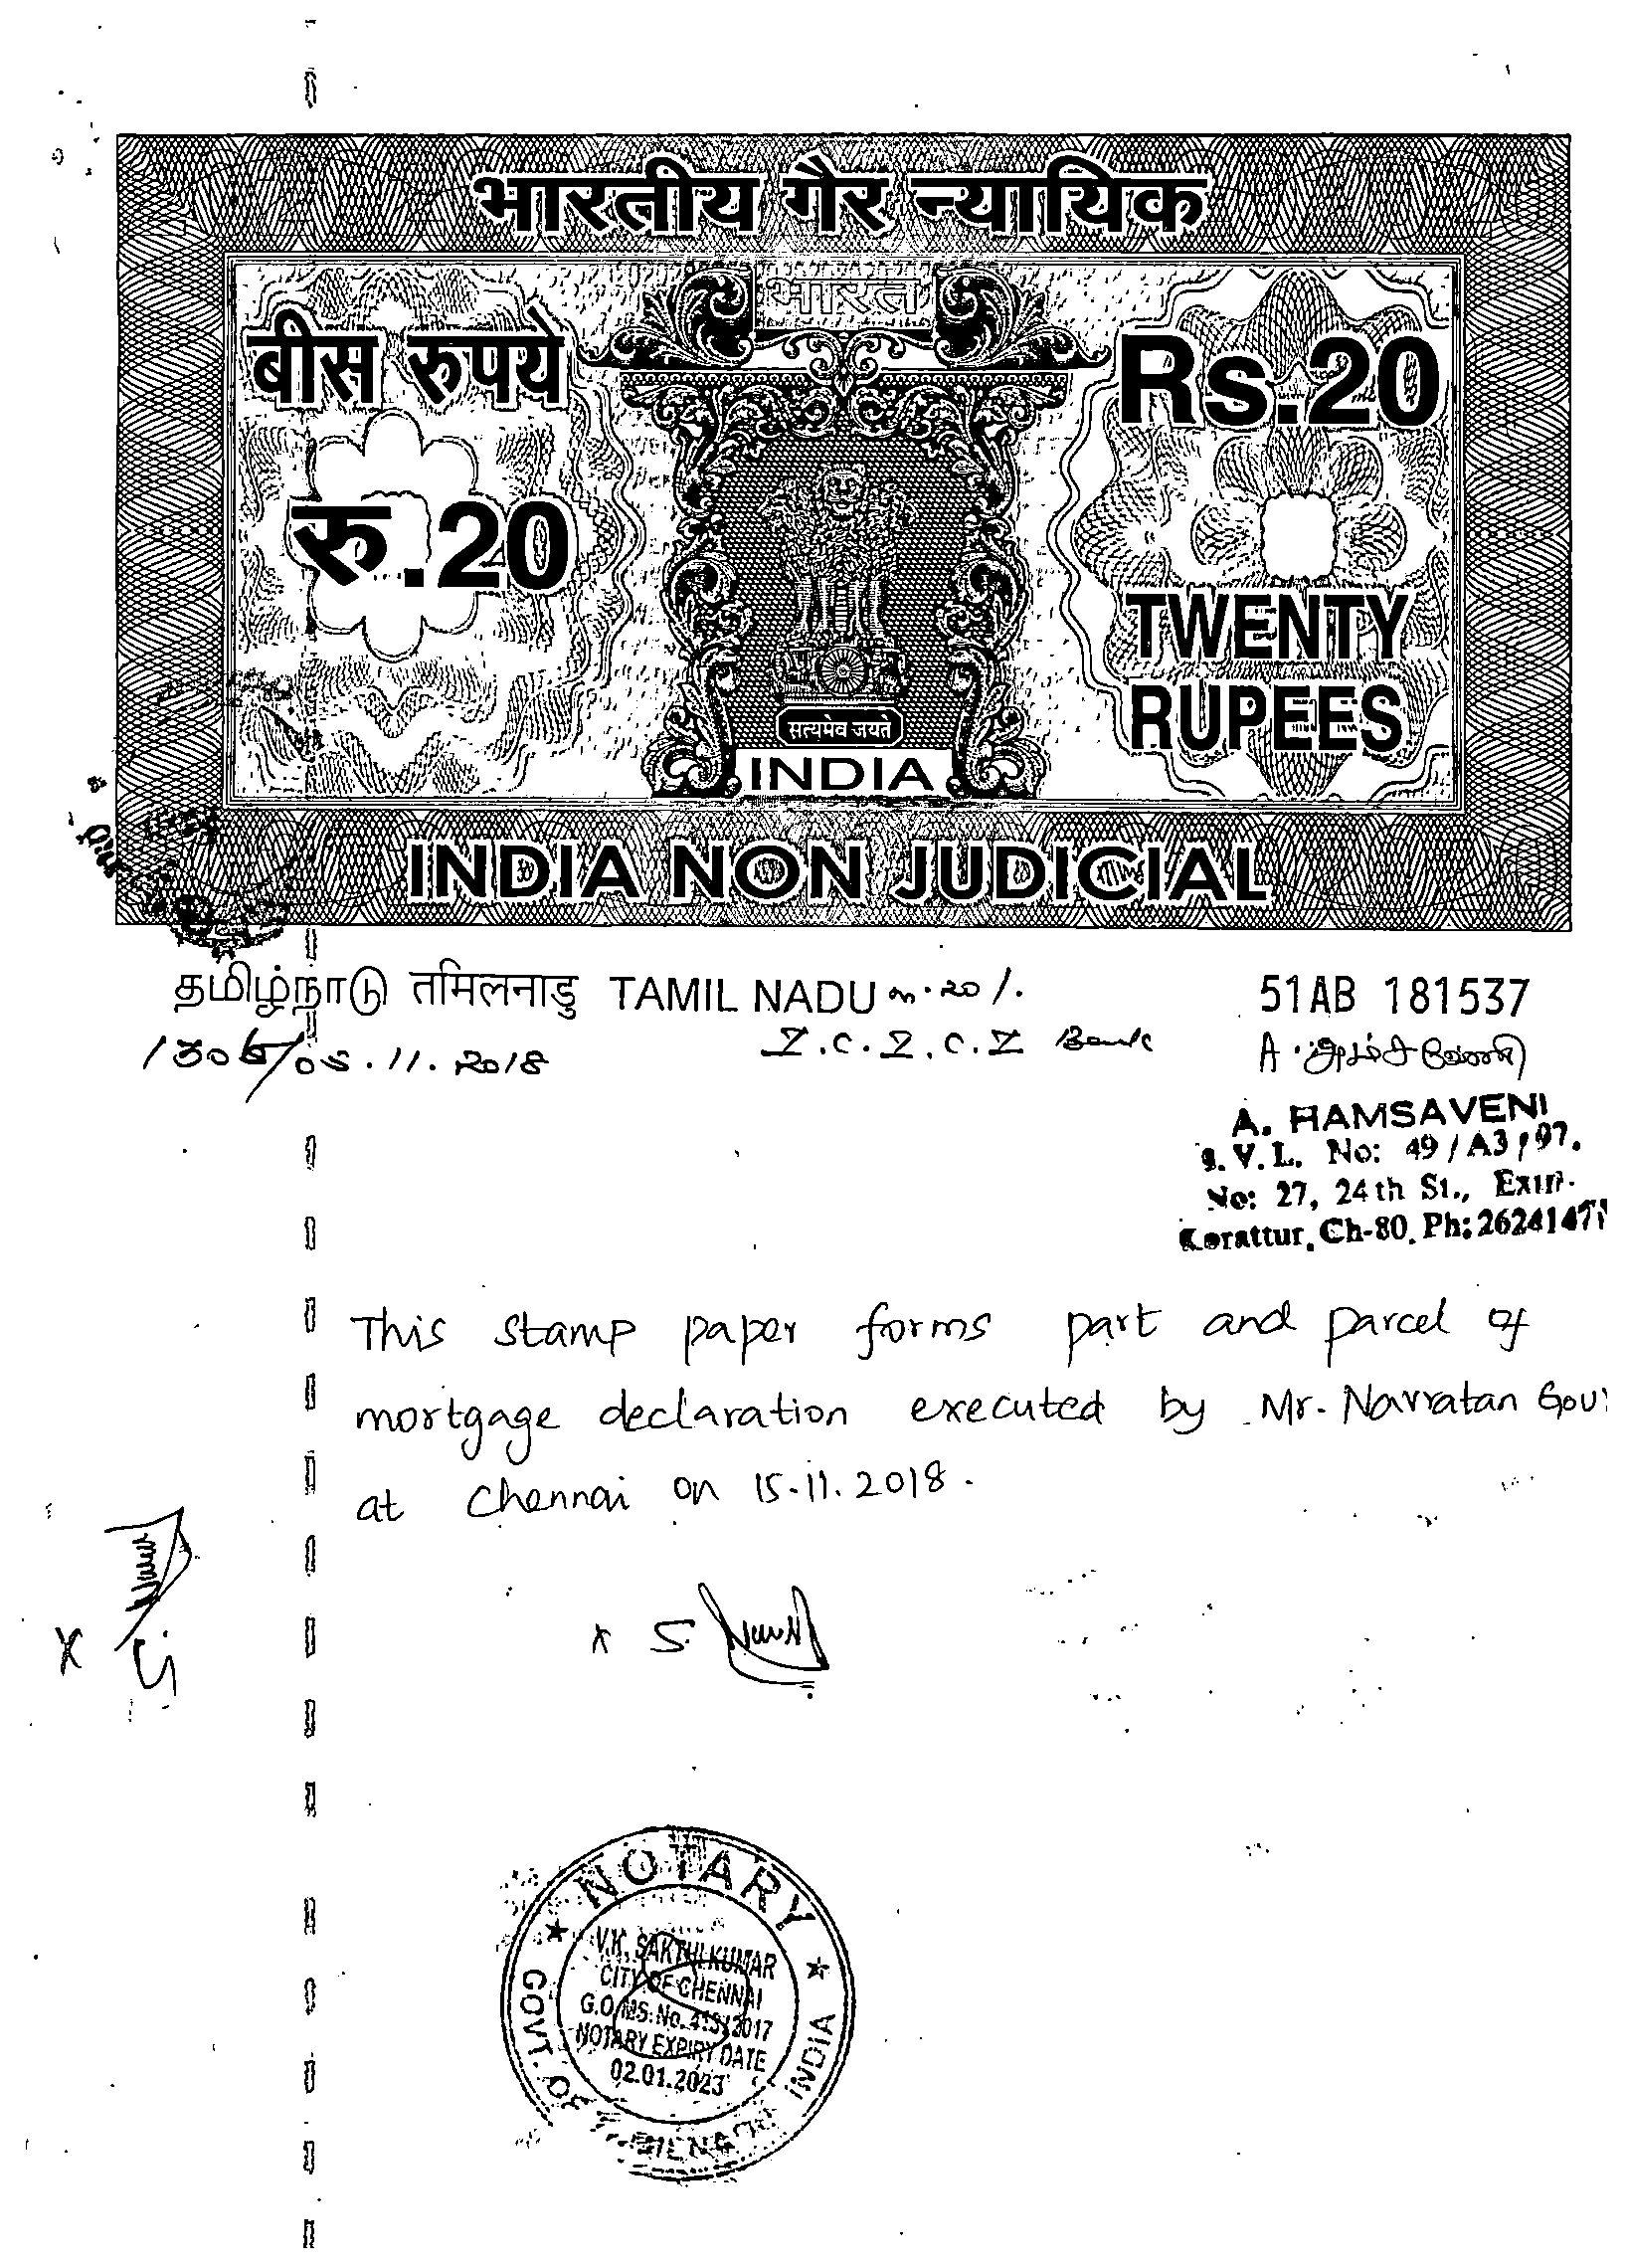 भारतीय गैर न्यायिक
भारत
बीस रुपये
Rs.20
रु.20
TWENTY
RUPEES
सत्यमेव जयते
INDIA
INDIA NON JUDICIAL
தமிழ்நாடு तमिलनाडु TAMIL NADU 20/.
51AB 181537
05.11.2018
I.C.I.C.I Bank
A.
A. HAMSAVENI
S.V.L. No: 49/A3/97.
No: 27, 24th St., Extn.
Korattur, Ch-80. Ph: 2624147
This stamp paper forms part and parcel of
mortgage declaration executed by Mr. Navratan Gou
at Chennai on 15.11.2018.
x
x S.
NOTARY
V.K. SAKTHI KUMAR
CITY OF CHENNAI
G.O.MS.No. 2017
NOTARY EXPIRY DATE
02.01.2023
GOVT. OF TAMILNADU INDIA